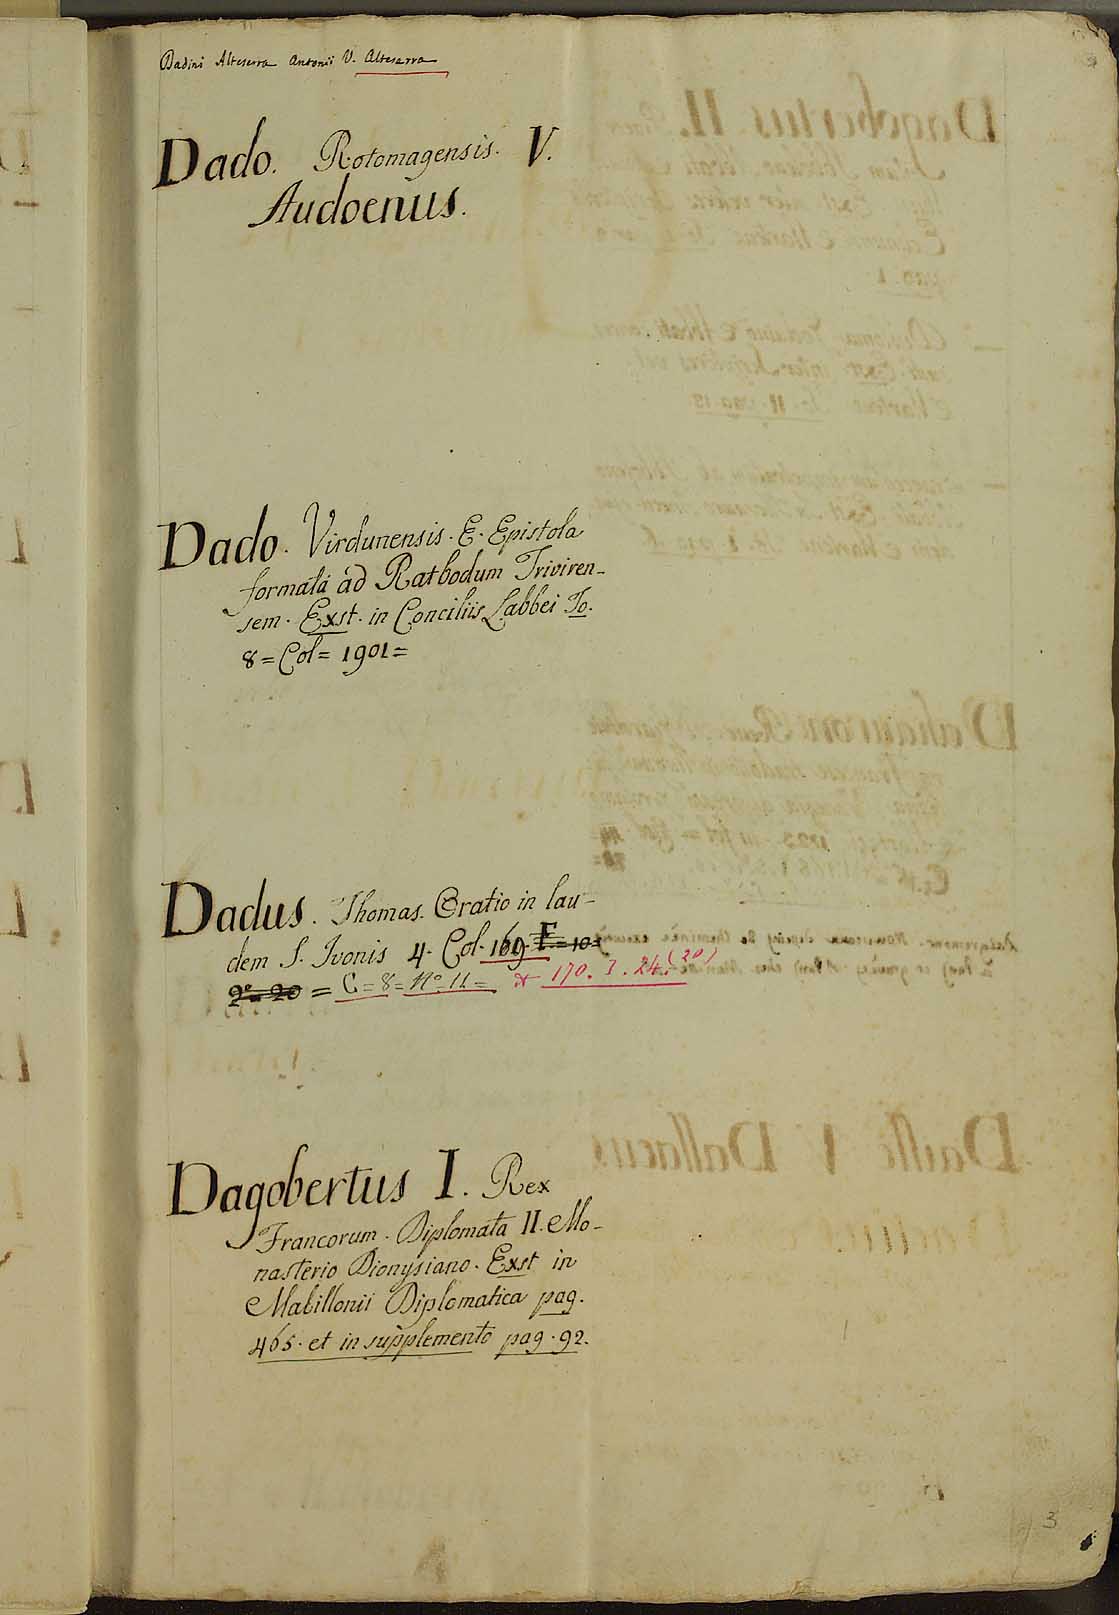 Dadini Alteserra Antonii V. Alteserra
Dado. Rotomagensis. V.
Audoenus.
Dado. Virdunensis. E. Epistola
formata ad Ratbodum Triviren-
sem. Exst. in Conciliis Labbei To.
8 = Col = 1901 =
Dadus. Thomas. Oratio in lau-
dem S. Ivonis 4. Col. 169. F. = 10 =
2º = 20 = C = 8 = Nº = 11 = & 170. I. 24. (20)
Dagobertus I. Rex
Francorum. Diplomata II. Mo-
nasterio Dionysiano. Exst in
Mabillonii Diplomatica pag.
465. et in supplemento pag. 92.
3